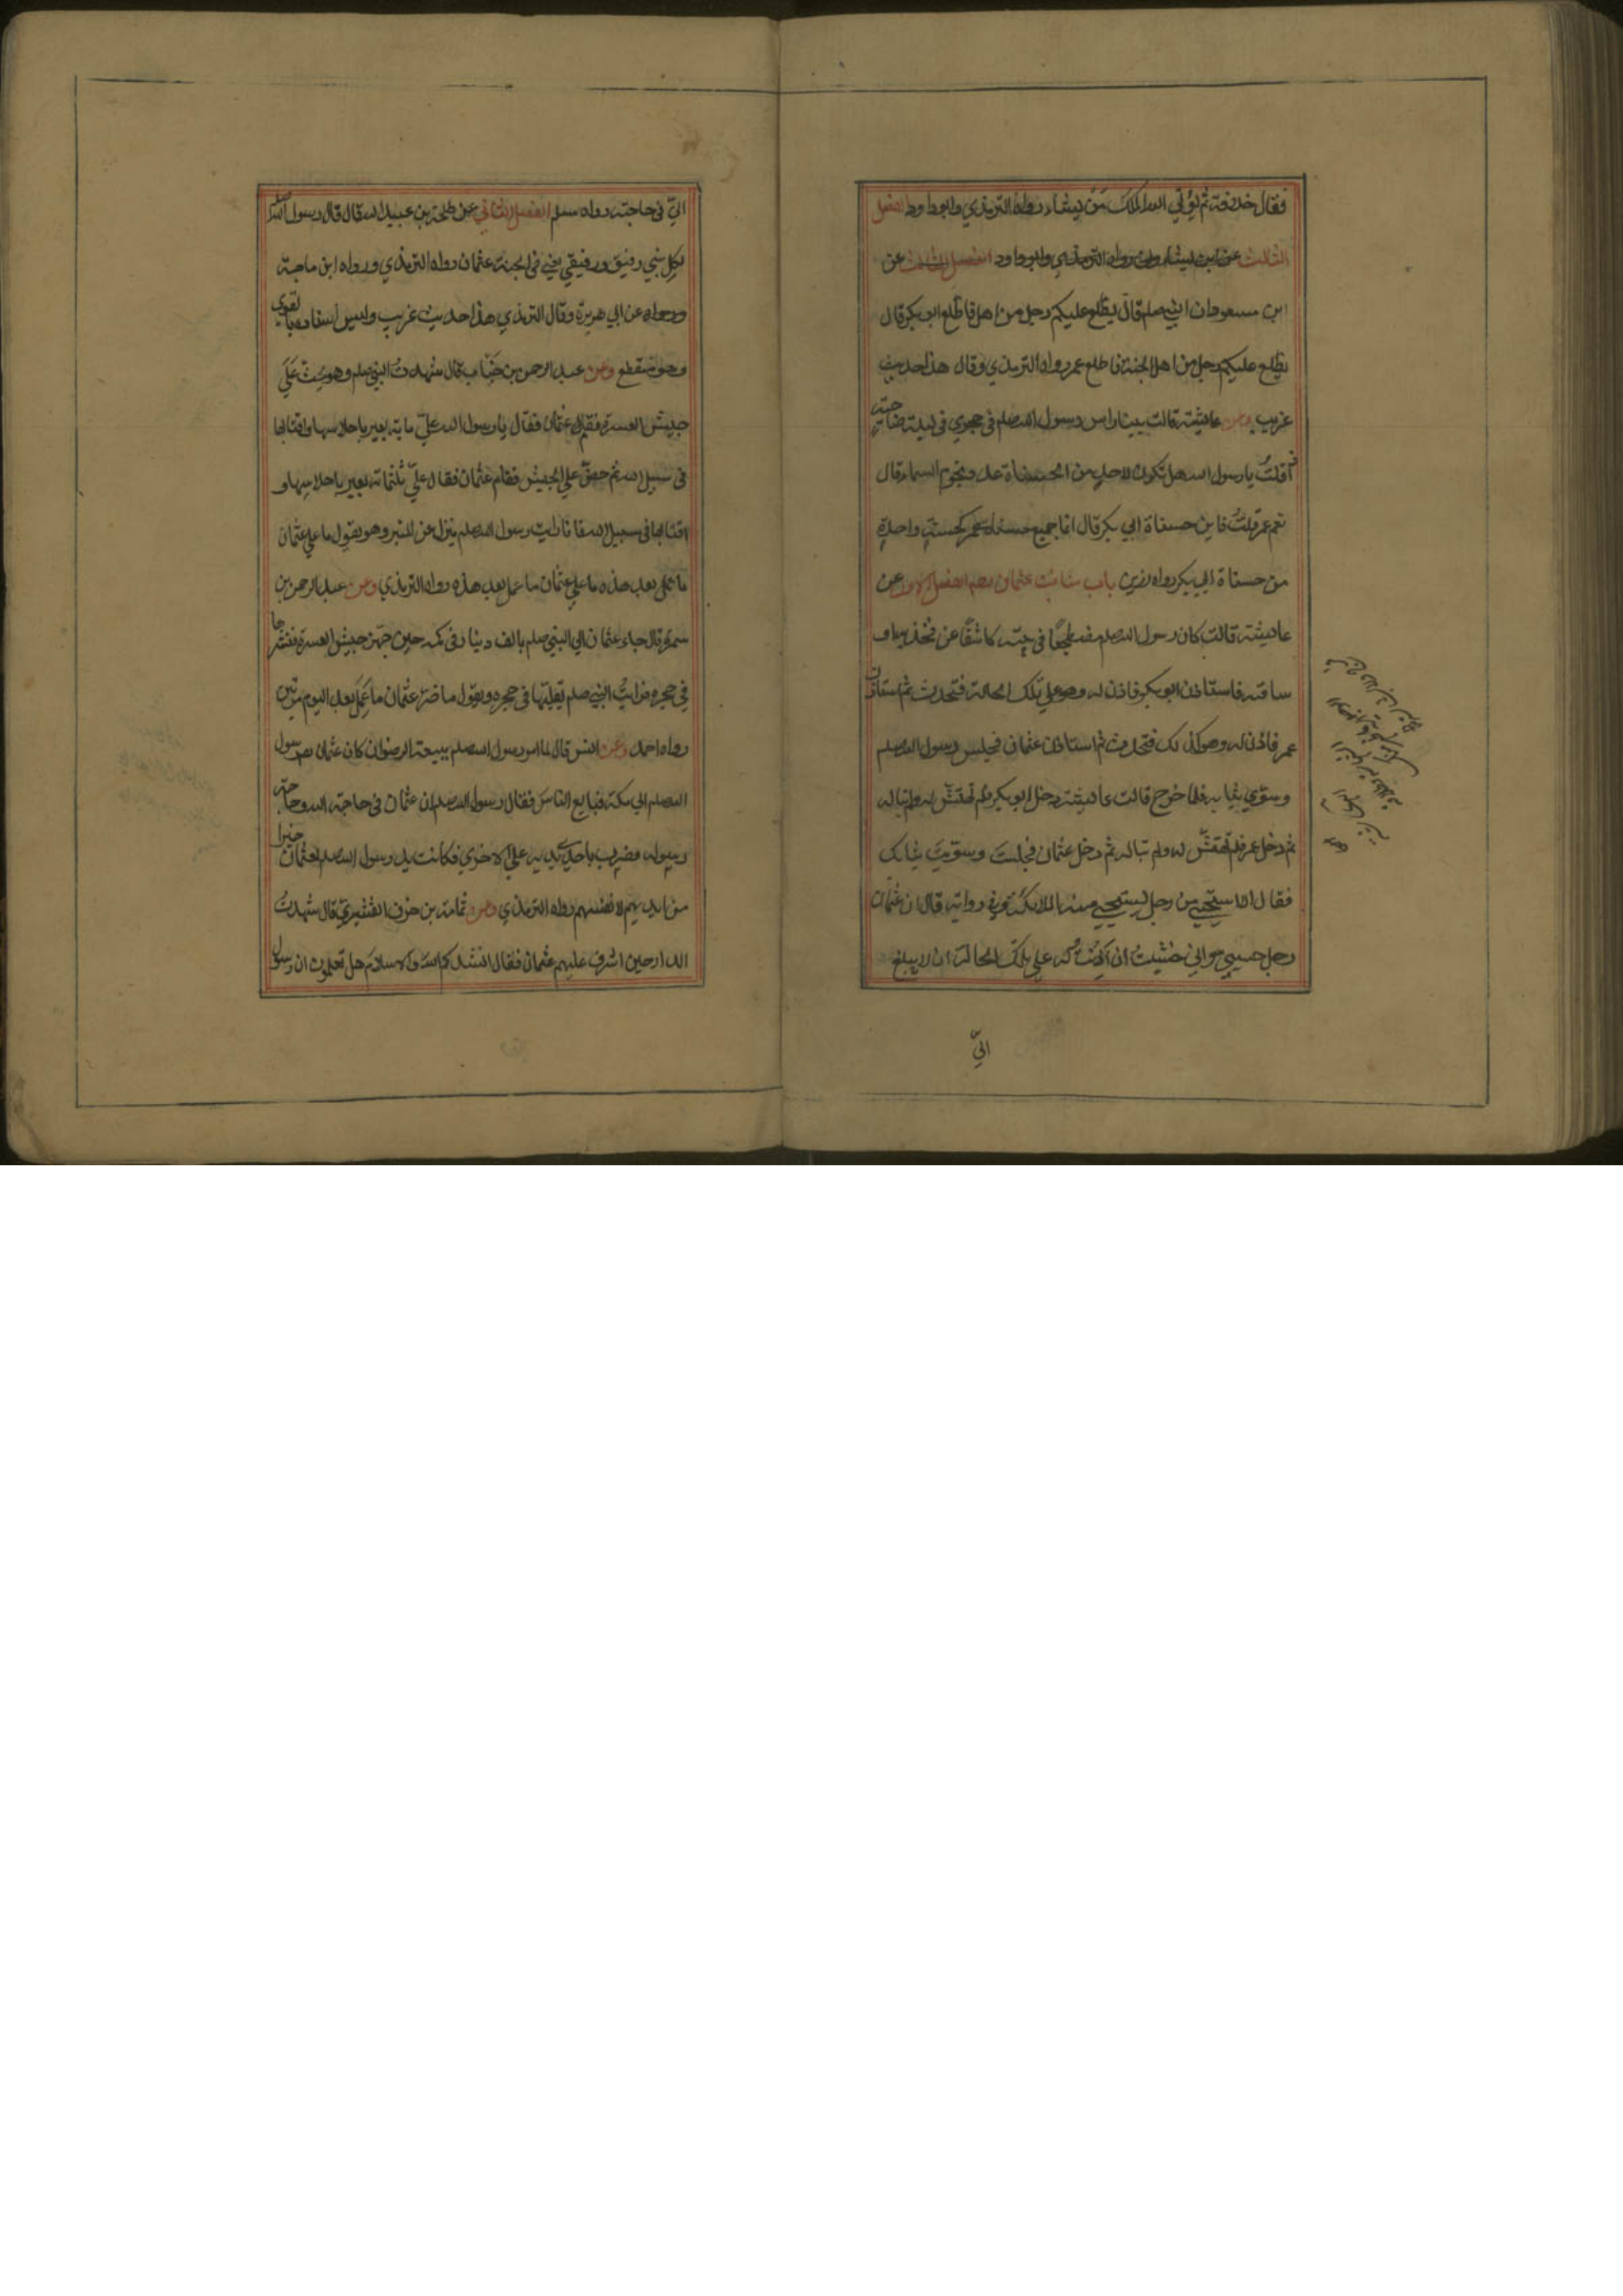 فقال خلافة ثم يؤتي الله الملك من يشاء رواه الترمذي وابوداود الفصل
الثالث عن ابن رواه الترمذي وابوداود الفصل الثالث عن
ابن مسعود ان النبي صلم قال يطلع عليكم رجل من اهل فاطلع ابو بكر قال
يطلع عليكم رجل من اهل الجنة فاطلع عمر رواه الترمذي وقال هذا حديث
غريب وعن عايشة قالت بينا راس رسول الله صلم في حجري في ليلة ضاحية
قلت يا رسول الله هل تكون لاحد من الحسناة عدد نجوم السماء قال
نعم عمر قلت فاين حسناة ابي بكر قال انما جميع حسناة عمر كحسنة واحدة
من حسناة ابي بكر رواه رزين باب مناقب عثمان رضه الفصل الاول عن
عايشة قالت كان رسول الله صلم مضطجعا في بيته كاشفا عن فخذيه او
ساقيه فاستاذن ابو بكر فاذن له وهو علي تلك الحالة فتحدث ثم استاذن
عمر فاذن له وهو كذلك فتحدث ثم استاذن عثمان فجلس رسول الله صلم
وسوي ثيابه فلما خرج قالت عايشة دخل ابو بكر فلم تهتش له ولم تباله
ثم دخل عمر فلم تهتش له ولم تباله ثم دخل عثمان فجلست وسويت ثيابك
فقال الا ستحيي من رجل يستحيي منه الملائكة وفي رواية قال ان عثمان
رجل حيي واني خشيت ان اذنت له علي تلك الحالة ان لا يبلغ
اليّ
اليّ في حاجته رواه مسلم الفصل الثاني عن طلحة بن عبيد الله قال قال رسول الله صلم
لكل نبي رفيق ورفيقي يعني في الجنة عثمان رواه الترمذي ورواه ابن ماجة
ورواه عن ابي هريرة وقال الترمذي هذا حديث غريب وليس اسناده بالقوي
وهو منقطع وعن عبد الرحمن بن خباب قال شهدت النبي صلم وهو يحث علي
جيش العسرة فقام عثمان فقال يا رسول الله عليّ ماية بعير باحلاسها واقتابها
في سبيل الله ثم حض علي الجيش فقام عثمان فقال عليّ ثلثماتة بعير باحلاسها و
اقتابها في سبيل الله فانا رايت رسول الله صلم ينزل عن المنبر وهو يقول ما علي عثمان
ما عمل بعد هذه ما علي عثمان ما عمل بعد هذه رواه الترمذي وعن عبد الرحمن بن
سمرة قال جاء عثمان الي النبي صلم بالف دينار في كمه حين جهز جيش العسرة فنثرها
في حجره فرايت النبي صلم يقلبها في حجره ويقول ما ضر عثمان ما عمل بعد اليوم مرتين
رواه احمد وعن انس قال لما امر رسول الله صلم ببيعة الرضوان كان عثمان رسول
الله صلم الي مكة فبايع الناس فقال رسول الله صلم ان عثمان في حاجة الله وحاجة
رسوله فضرب باحدي يديه علي الاخري فكانت يد رسول الله صلم لعثمان خيرا
من ايديهم لانفسهم رواه الترمذي وعن ثمامة بن حزن القشيري قال شهدت
الدار حين اشرف عليهم عثمان فقال انشدكم الله والاسلام هل تعلمون ان رسول